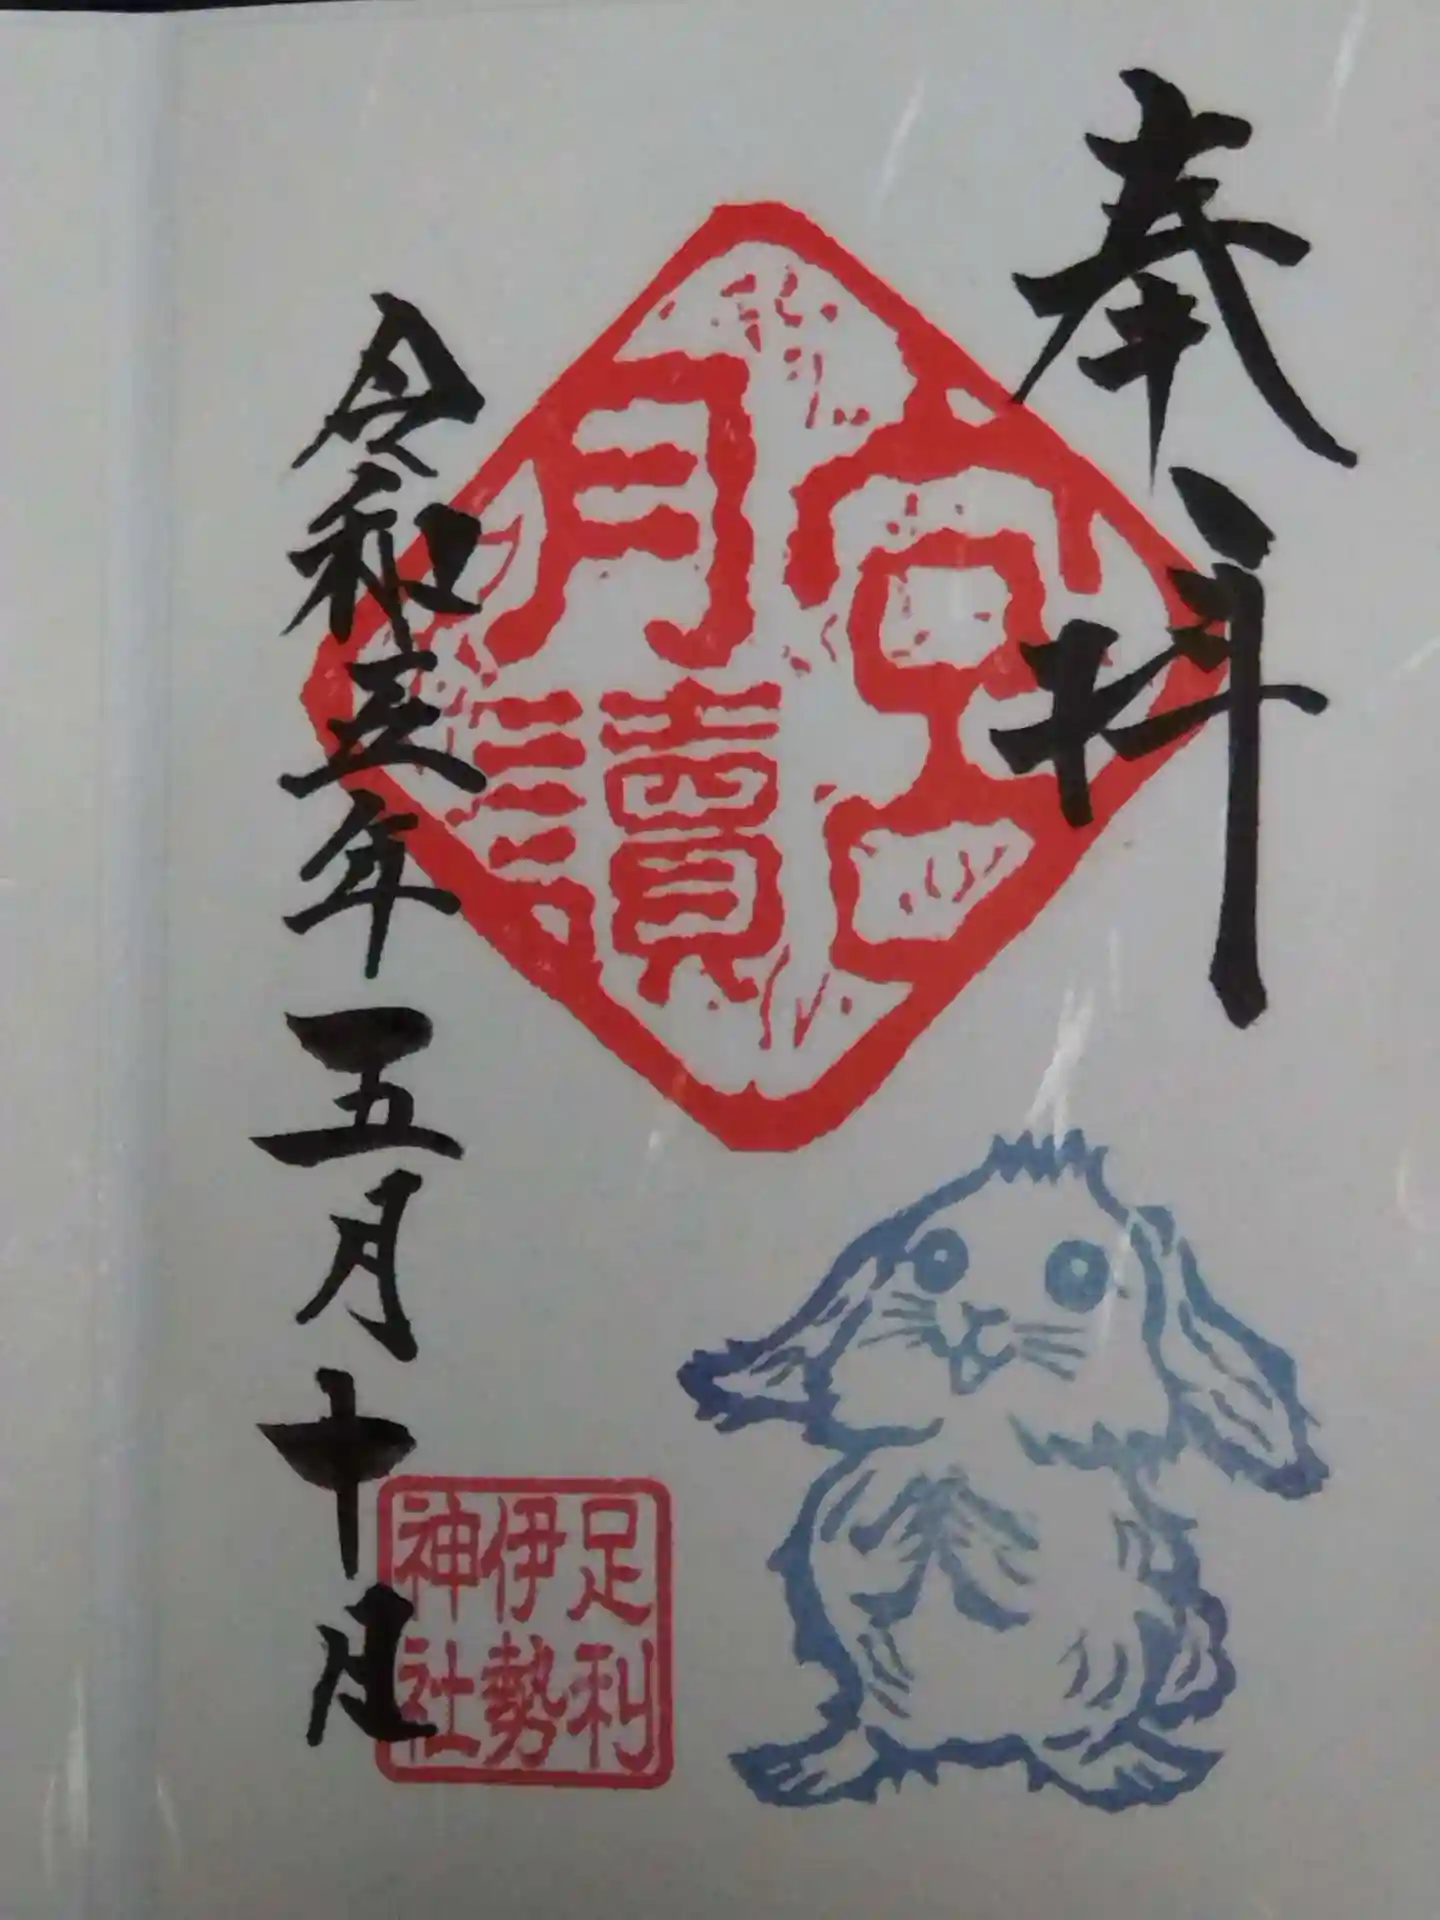 奉拝
月讀宮
令和五年五月十日
足利
伊勢
神社